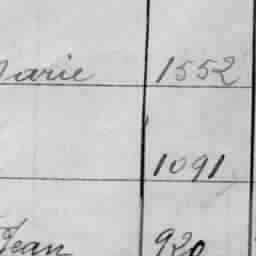 Marie 1552
1091
Jean 920